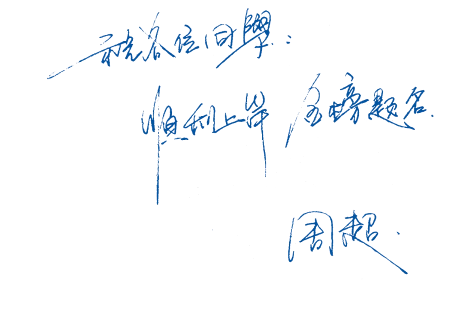 祝各位同學：
順利上岸 金榜題名.
周超.